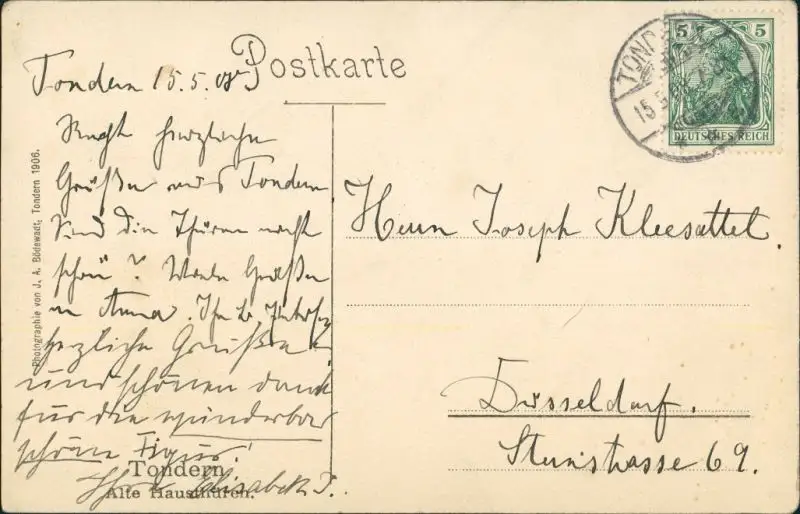 Postkarte
Tondern 15.5.08
Recht herzliche
Grüße aus Tondern
Sind die Thüren nicht
schön? Viele Grüße
an Anna. Ihr
herzliche Grüße
und schönen dank
für die wunderbar
schöne Figur!
Ihre Elisabeth J.
Tondern.
Alte Hausthüren.
Photographie von J. A. Bödewadt, Tondern 1906.
TONDERN
15.5.
5 5
DEUTSCHES REICH
Herrn Joseph Kleesattel.
Düsseldorf.
Sternstrasse 69.